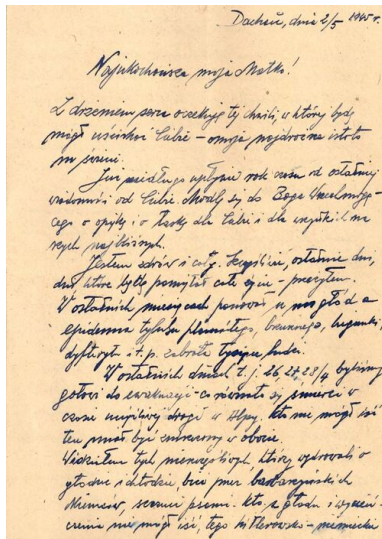 Dachau, dnia 2/5 1945 r.
Najukochańsza moja Matko!
Z drżeniem serca oczekuję tej chwili, w której będę
mógł uściskać Ciebie – o moja najdroższa istoto
na ziemi.
Już niedługo upłynie rok czasu od ostatniej
wiadomości od Ciebie. Modlę się do Boga Wszechmogą-
cego o opiekę i o łaskę dla Ciebie i dla wszystkich na-
szych najbliższych.
Jestem zdrów i cały. Szczęśliwie, ostatnie dni,
dni które będę pamiętał całe życie – przeżyłem.
W ostatnich miesiącach ponieważ u nas głód a
epidemia tyfusu plamistego, brzusznego, biegunki,
dyfteryt i t. p. zabrała tysiące ludzi.
W ostatnich dniach t. j. 26, 27, 28/4 byliśmy
gotowi do ewakuacji – co równało się śmierci w
czasie uciążliwej drogi w Alpy. Kto nie mógł iść
ten miał być w obozie.
Widziałem tych nieszczęśliwych, którzy wędrowali o
głodzie i chłodzie, bici przez barbarzyńskich
Niemców, szczuci psami. Kto z głodu i wycień-
czenia nie mógł iść, tego hitlerowsko – niemiecki